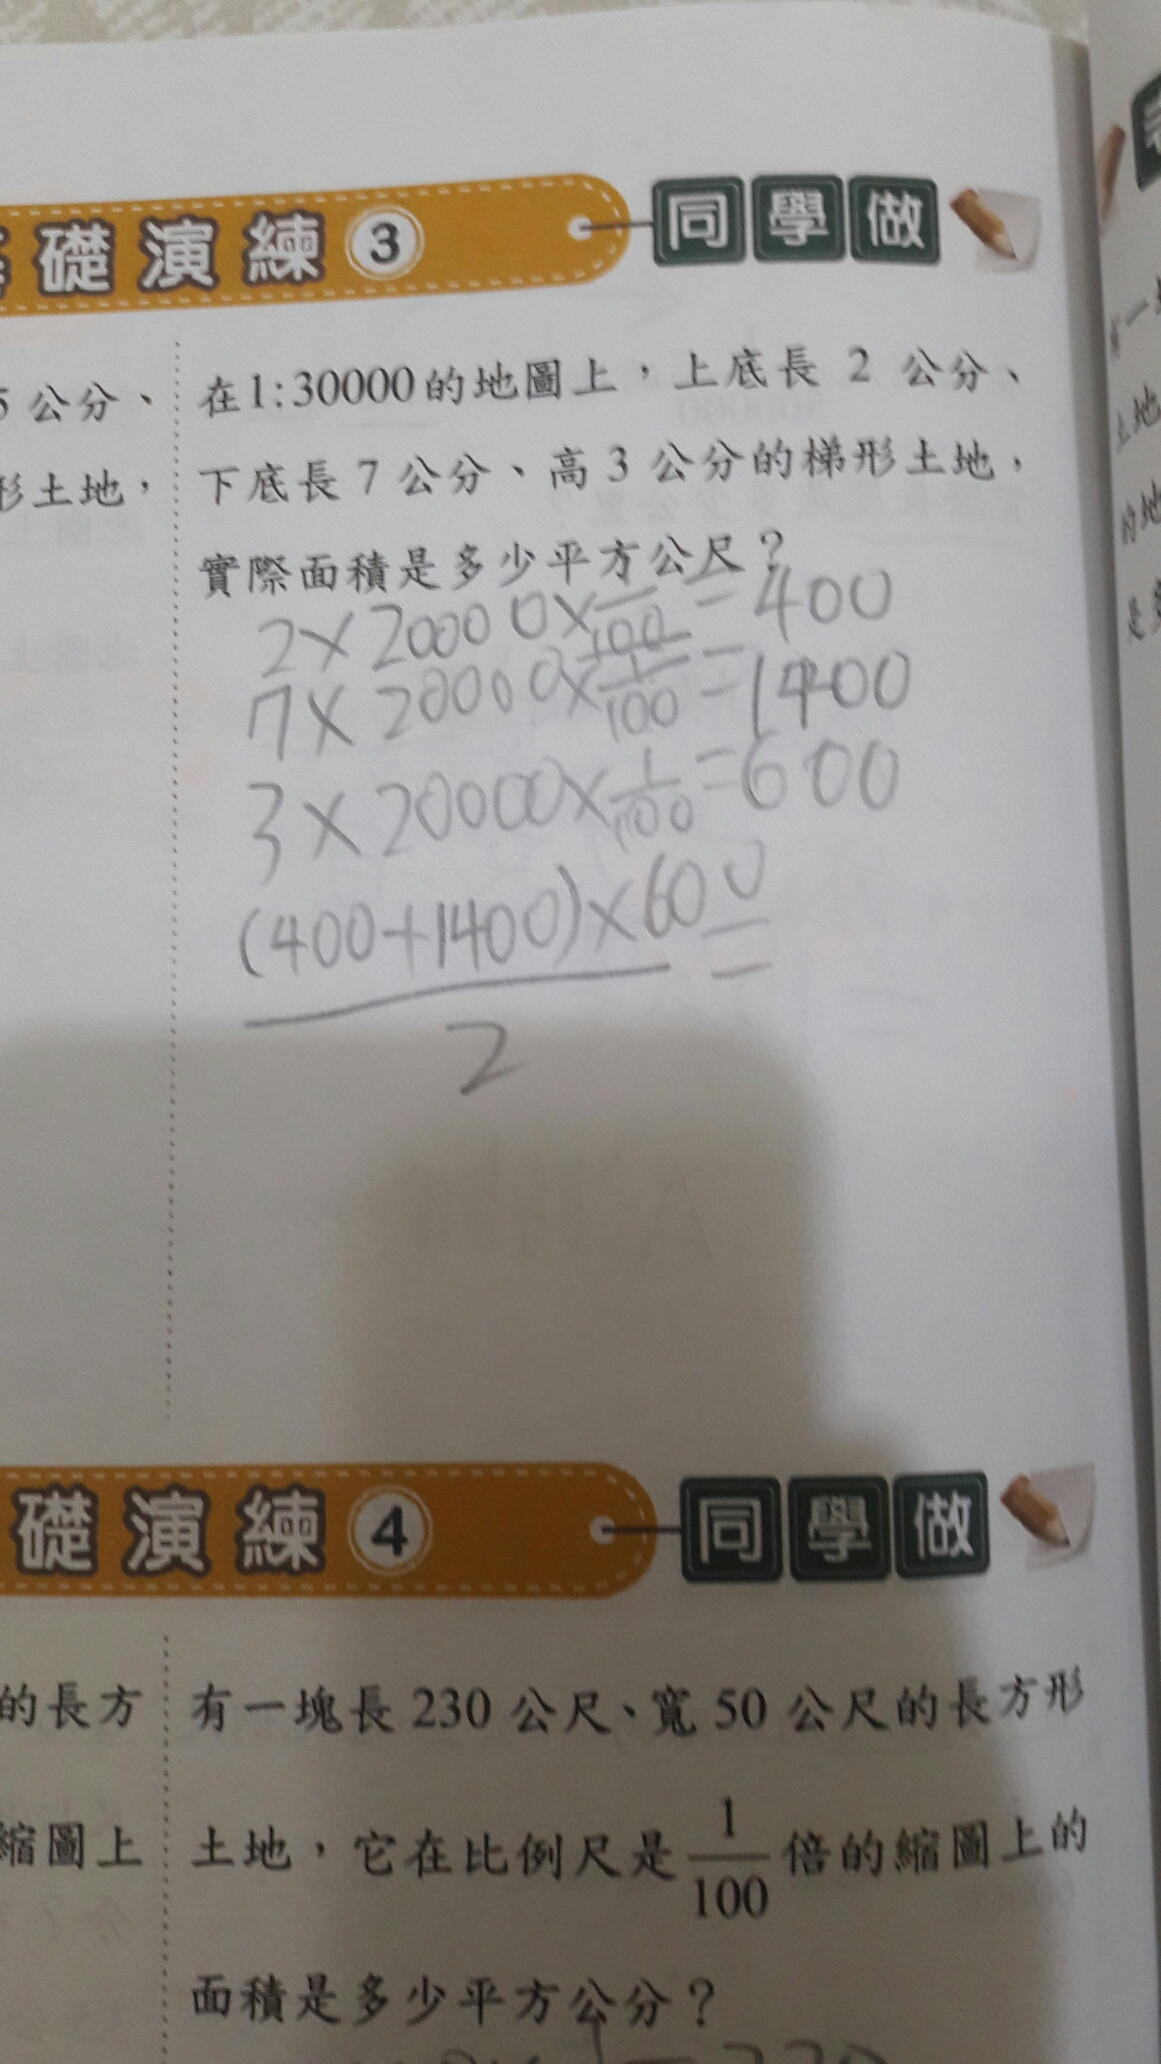 礎演練3 同學做
5公分、
形土地，
在1:30000的地圖上，上底長 2 公分、
下底長 7 公分、高 3 公分的梯形土地，
實際面積是多少平方公尺？
2×20000×1/100=400
7×20000×1/100=1400
3×20000×1/100=600
(400+1400)×600/2=
礎演練4 同學做
的長方
縮圖上
有一塊長 230 公尺、寬 50 公尺的長方形
土地，它在比例尺是 1/100 倍的縮圖上的
面積是多少平方公分？
土地
的地